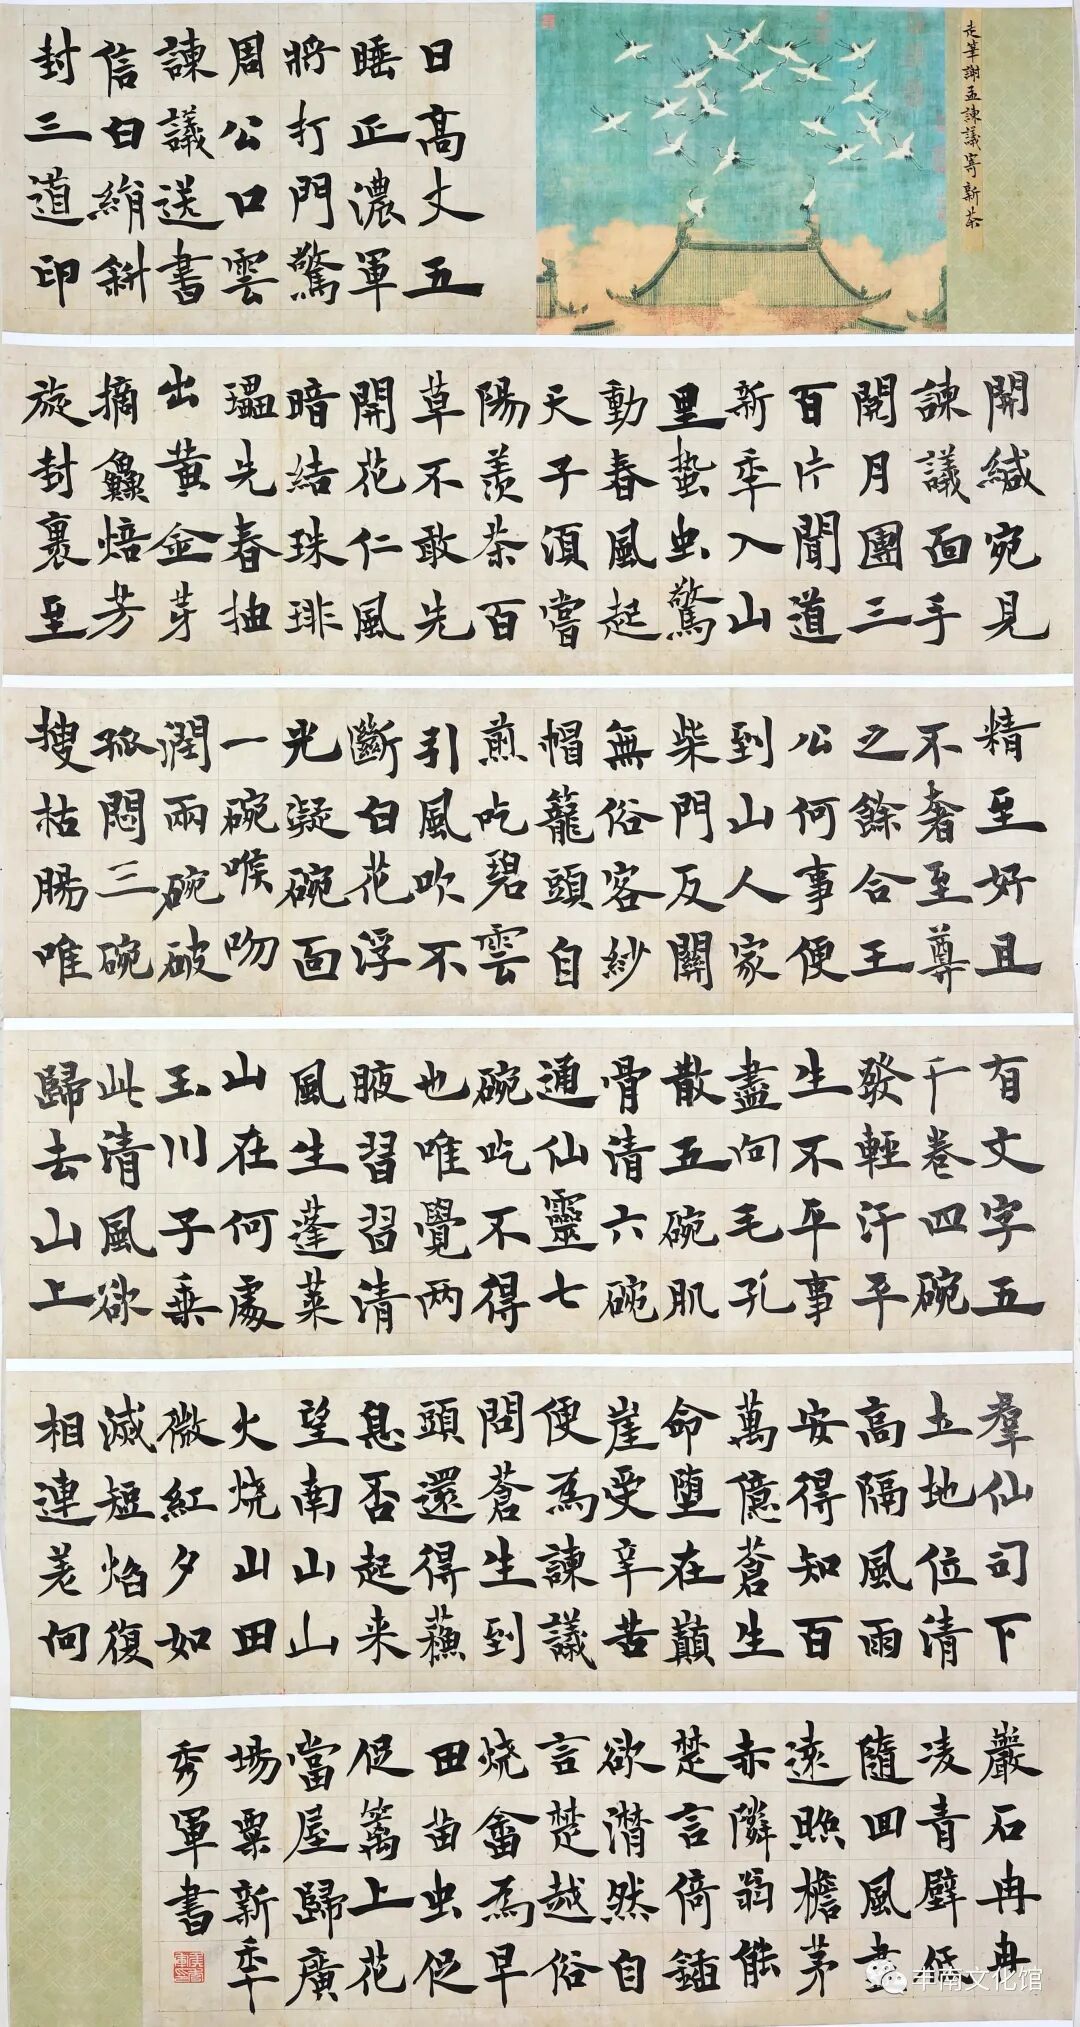 走筆謝孟諫議寄新茶
日高丈五
睡正濃軍
將打門驚
周公口雲
諫議送書
信白絹斜
封三道印
開緘宛見
諫議面手
閱月團三
百片聞道
新秊入山
里蟄虫驚
動春風起
天子須嘗
陽羨茶百
草不敢先
開花仁風
暗結珠琲
瓃先春抽
出黃金芽
摘鱻焙芳
旋封裹至
精至好且
不奢至尊
之餘合王
公何事便
到山人家
柴門反關
無俗客紗
帽籠頭自
煎吃碧雲
引風吹不
斷白花浮
光凝碗面
一碗喉吻
潤兩碗破
孤悶三碗
搜枯腸唯
有文字五
千卷四碗
發輕汗平
生不平事
盡向毛孔
散五碗肌
骨清六碗
通仙靈七
碗吃不得
也唯覺两
腋習習清
風生蓬萊
山在何處
玉川子乗
此清風欲
歸去山上
羣仙司下
土地位清
高隔風雨
安得知百
萬億蒼生
命墮在巔
崖受辛苦
便為諫議
問蒼生到
頭還得蘓
息否起来
望南山山
火烧山田
微紅夕如
滅短焰復
相連差何
巖石冉冉
凌青壁低
隨回風盡
遠照檐茅
赤隣翁能
楚言倚鍤
欲潸然自
言楚越俗
烧畬為早
田苗虫促
促籬上花
當屋歸廣
場粟新秊
秀軍書
丰南文化馆